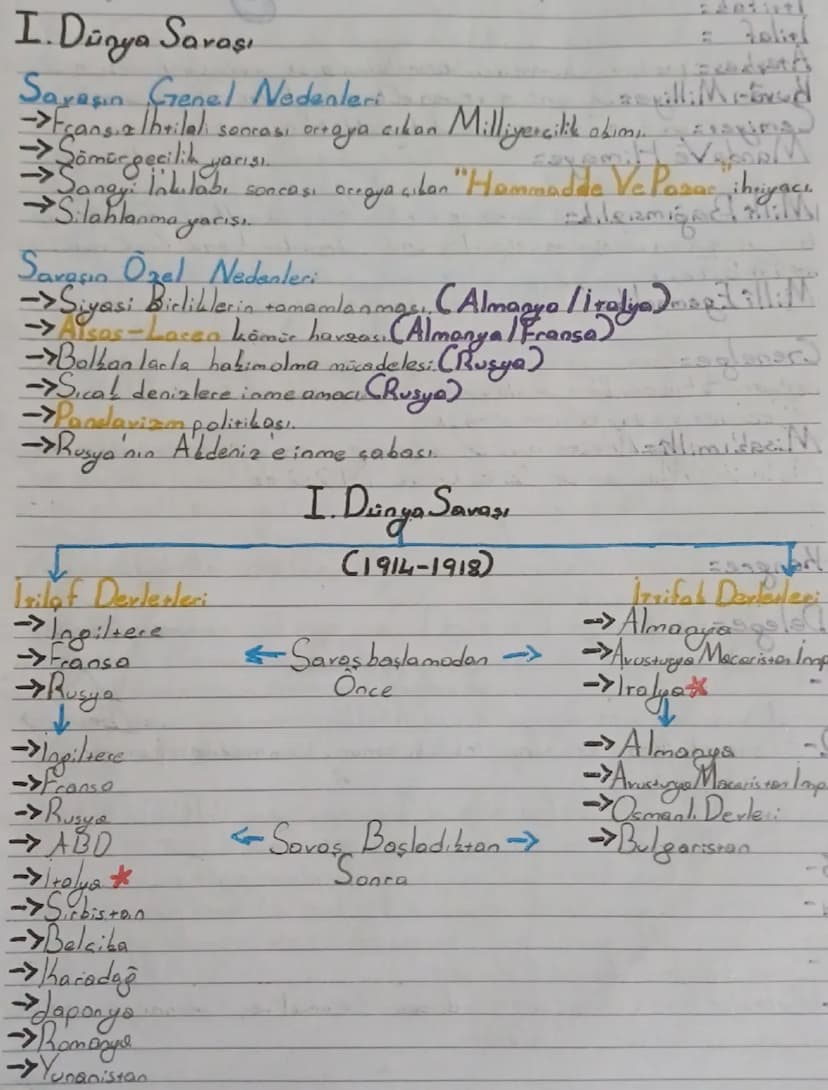 I. Dünya Savaşı
Savaşın Genel Nedenleri
→Fransız İhtilali sonrası ortaya çıkan Milliyetçilik akımı.
→Sömürgecilik yarışı.
→Sanayi İnkılabı sonrası ortaya çıkan "Hammadde Ve Pazar" ihtiyacı
→Silahlanma yarışı.
Savaşın Özel Nedenleri
→Siyasi Birliklerin tamamlanması. (Almanya/İtalya)
→Alsas-Loren kömür havzası (Almanya/Fransa)
→Balkanlarla hakim olma mücadelesi (Rusya)
→Sıcak denizlere inme amacı (Rusya)
→Panslavizm politikası.
→Rusya'nın Akdeniz'e inme çabası.
I. Dünya Savaşı
(1914-1918)
İtilaf Devletleri
İttifak Devletleri
→İngiltere
→Fransa
→Rusya
← Savaş başlamadan →
Önce
→Almanya
→Avusturya Macaristan İmp
→İtalya*
→İngiltere
→Fransa
→Rusya
→ABD
→İtalya *
→Sırbistan
→Belçika
→Karadağ
→Japonya
→Romanya
→Yunanistan
← Savaş Başladıktan →
Sonra
→Almanya
→Avusturya Macaristan İmp
→Osmanlı Devleti
→Bulgaristan